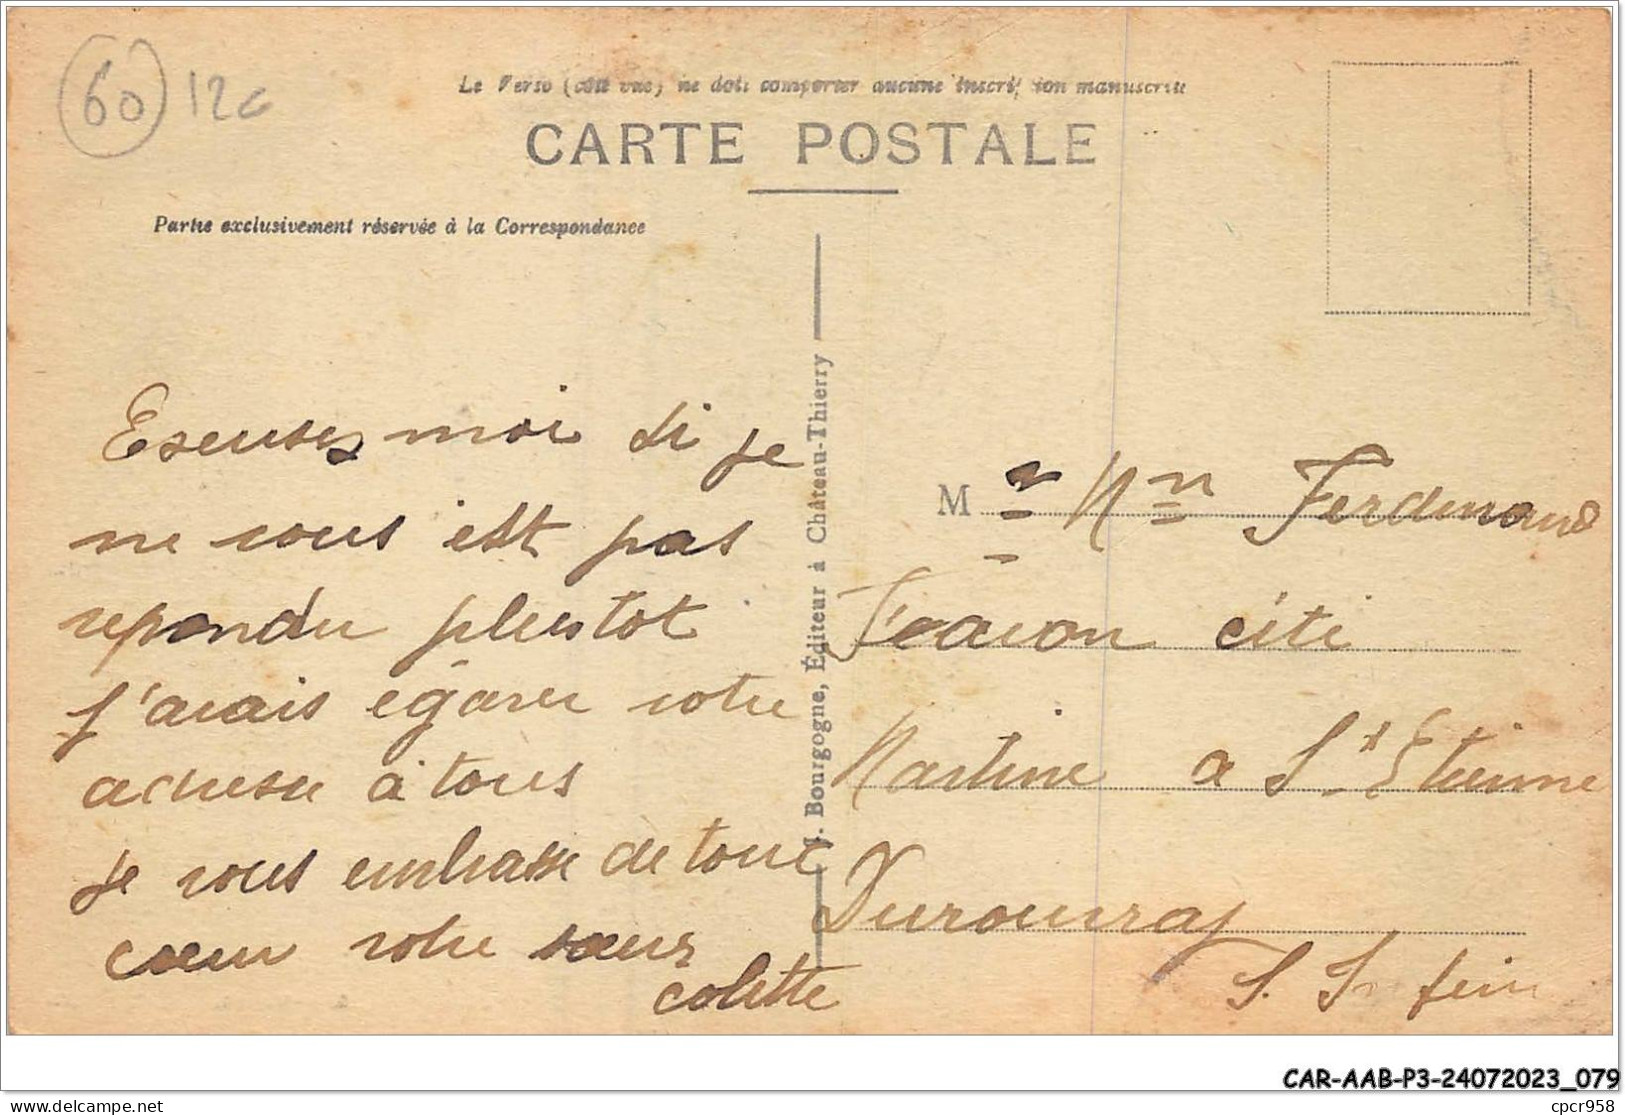 60 12c
Le Verso (côté vue) ne doit comporter aucune inscription manuscrite
CARTE POSTALE
Partie exclusivement réservée à la Correspondance
J. Bourgogne, Éditeur à Château-Thierry
Escuses moi si je
ne vous est pas
repondu plustot
j'avais égarer votre
adresse à tous
je vous embrasse de tout
cœur votre sœur
colette
M r Mme Ferdinand
cité
Martine a St Etienne
Durouvray
S. Inferin
CAR-AAB-P3-24072023_079
delcampe.net
cpcr958